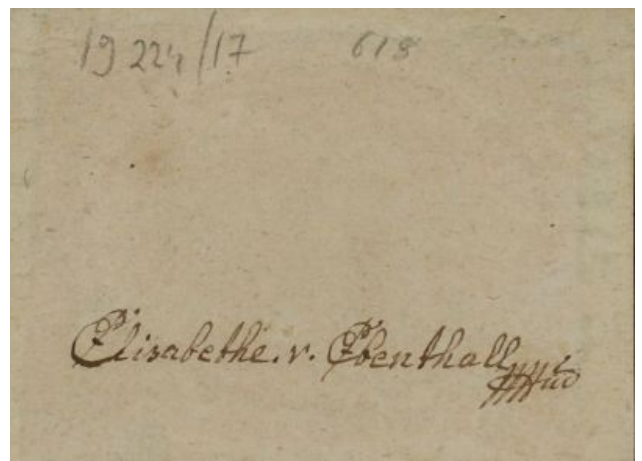 19224/17 618
Elisabethe. v. Ebenthall